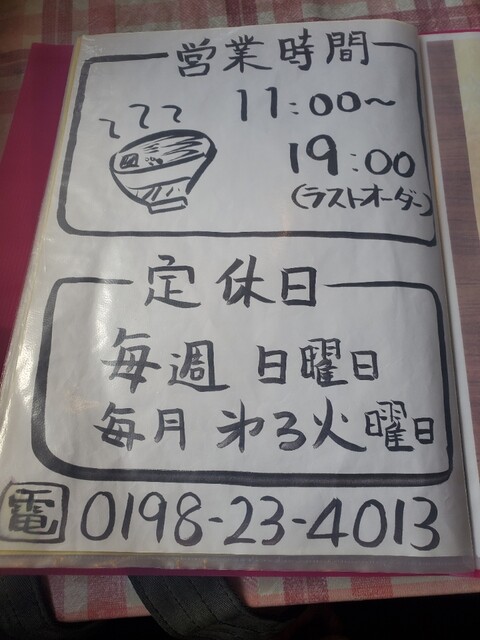 営業時間
11:00〜
19:00
(ラストオーダー)
定休日
毎週 日曜日
毎月 第3火曜日
電 0198-23-4013